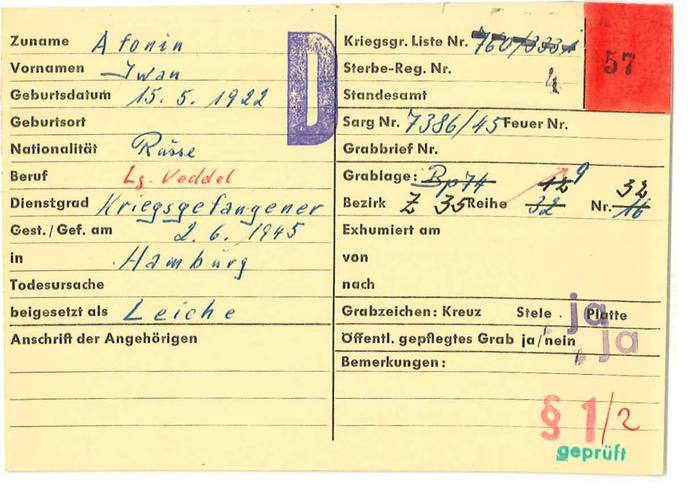 Zuname Afonin
Vornamen Iwan
Geburtsdatum 15. 5. 1922
Geburtsort
Nationalität Russe
Beruf Lg. Veddel
Dienstgrad Kriegsgefangener
Gest./Gef. am 2. 6. 1945
in Hamburg
Todesursache
beigesetzt als Leiche
Anschrift der Angehörigen
D
Kriegsgr. Liste Nr. 760/333
57
Sterbe-Reg. Nr. 4
Standesamt
Sarg Nr. 7386/45 Feuer Nr.
Grabbrief Nr.
Grablage: Bp74 12 9 32
Bezirk Z 35 Reihe 32 Nr. 16
Exhumiert am
von
nach
Grabzeichen: Kreuz Stele . ja Platte
Öffentl. gepflegtes Grab ja/nein ja
Bemerkungen:
§ 1/2
geprüft